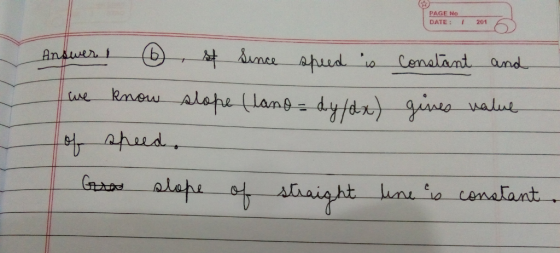 PAGE No
DATE: / 201
Answer 1 (b), Since speed is constant and
we know slope (tanθ = dy/dx) gives value
of speed.
slope of straight line is constant.